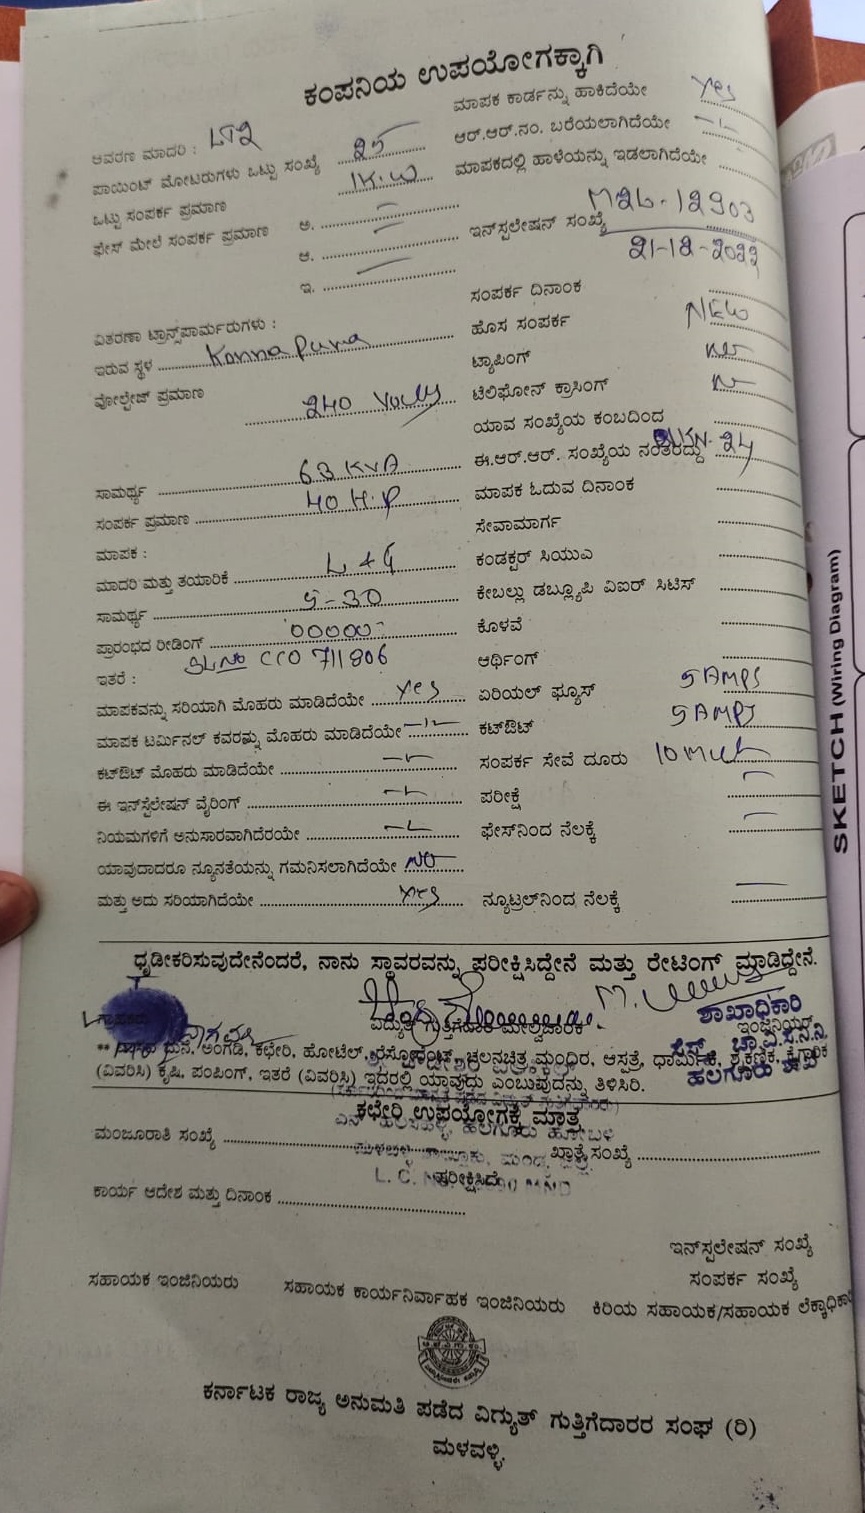 ಕಂಪನಿಯ ಉಪಯೋಗಕ್ಕಾಗಿ
ಆವರಣ ಮಾದರಿ : LT2
ಮಾಪಕ ಕಾರ್ಡನ್ನು ಹಾಕಿದೆಯೇ Yes
ಪಾಯಿಂಟ್ ಮೋಟರುಗಳು ಒಟ್ಟು ಸಂಖ್ಯೆ 25
ಆರ್.ಆರ್.ನಂ. ಬರೆಯಲಾಗಿದೆಯೇ
ಒಟ್ಟು ಸಂಪರ್ಕ ಪ್ರಮಾಣ 1K.W
ಮಾಪಕದಲ್ಲಿ ಹಾಳೆಯನ್ನು ಇಡಲಾಗಿದೆಯೇ
ಫೇಸ್ ಮೇಲೆ ಸಂಪರ್ಕ ಪ್ರಮಾಣ ಅ.
ಇನ್‌ಸ್ಟಲೇಷನ್ ಸಂಖ್ಯೆ M2L-12903
ಆ.
21-12-2022
ಇ.
ಸಂಪರ್ಕ ದಿನಾಂಕ
ವಿತರಣಾ ಟ್ರಾನ್ಸ್‌ಪಾರ್ಮರುಗಳು :
ಹೊಸ ಸಂಪರ್ಕ NEW
ಇರುವ ಸ್ಥಳ KonnaPura
ಟ್ಯಾಪಿಂಗ್
ವೋಲ್ಟೇಜ್ ಪ್ರಮಾಣ 240
ಟೆಲಿಫೋನ್ ಕ್ರಾಸಿಂಗ್
ಯಾವ ಸಂಖ್ಯೆಯ ಕಂಬದಿಂದ
ಈ.ಆರ್.ಆರ್. ಸಂಖ್ಯೆಯ ನಂತರದ್ದು 24
ಸಾಮರ್ಥ್ಯ 63 KVA
ಮಾಪಕ ಓದುವ ದಿನಾಂಕ
ಸಂಪರ್ಕ ಪ್ರಮಾಣ 40 H.P
ಸೇವಾಮಾರ್ಗ
ಮಾಪಕ :
ಕಂಡಕ್ಟರ್ ಸಿಯುಎ
ಮಾದರಿ ಮತ್ತು ತಯಾರಿಕೆ L+G
ಕೇಬಲ್ಲು ಡಬ್ಲ್ಯೂಪಿ ವಿಐರ್ ಸಿಟಿಸ್
ಸಾಮರ್ಥ್ಯ 5-30
ಕೊಳವೆ
ಪ್ರಾರಂಭದ ರೀಡಿಂಗ್ 00000
ಆರ್ಥಿಂಗ್
ಇತರೆ : SL.No CCO 711806
ಮಾಪಕವನ್ನು ಸರಿಯಾಗಿ ಮೊಹರು ಮಾಡಿದೆಯೇ Yes
ಏರಿಯಲ್ ಫ್ಯೂಸ್ 5 AMPS
ಮಾಪಕ ಟರ್ಮಿನಲ್ ಕವರನ್ನು ಮೊಹರು ಮಾಡಿದೆಯೇ
ಕಟ್ಔಟ್ 5 AMPS
ಕಟ್ಔಟ್ ಮೊಹರು ಮಾಡಿದೆಯೇ
ಸಂಪರ್ಕ ಸೇವೆ ದೂರು 10
ಈ ಇನ್‌ಸ್ಟಲೇಷನ್ ವೈರಿಂಗ್
ಪರೀಕ್ಷೆ
ನಿಯಮಗಳಿಗೆ ಅನುಸಾರವಾಗಿದೆರಯೇ
ಫೇಸ್‌ನಿಂದ ನೆಲಕ್ಕೆ
ಯಾವುದಾದರೂ ನ್ಯೂನತೆಯನ್ನು ಗಮನಿಸಲಾಗಿದೆಯೇ NO
ಮತ್ತು ಅದು ಸರಿಯಾಗಿದೆಯೇ Yes
ನ್ಯೂಟ್ರಲ್‌ನಿಂದ ನೆಲಕ್ಕೆ
SKETCH (Wiring Diagram)
ಧೃಡೀಕರಿಸುವುದೇನೆಂದರೆ, ನಾನು ಸ್ಥಾವರವನ್ನು ಪರೀಕ್ಷಿಸಿದ್ದೇನೆ ಮತ್ತು ರೇಟಿಂಗ್ ಮಾಡಿದ್ದೇನೆ.
ಶಾಖಾಧಿಕಾರಿ
ವಿದ್ಯುತ್ ಗುತ್ತಿಗೆದಾರ ಮೇಲ್ವಿಚಾರಕ
ಇಂಜಿನಿಯರ್
ಹಲಗೂರು ಶಾಖೆ
ಮನೆ, ಅಂಗಡಿ, ಕಛೇರಿ, ಹೋಟೆಲ್, ರೆಸ್ಟೋರೆಂಟ್, ಚಲನಚಿತ್ರ ಮಂಧಿರ, ಆಸ್ಪತ್ರೆ, ಧಾರ್ಮಿಕ, ಶೈಕ್ಷಣಿಕ, ಕೈಗಾರಿಕ
(ವಿವರಿಸಿ) ಕೃಷಿ, ಪಂಪಿಂಗ್, ಇತರೆ (ವಿವರಿಸಿ) ಇದರಲ್ಲಿ ಯಾವುದು ಎಂಬುವುದನ್ನು ತಿಳಿಸಿರಿ.
ಕಛೇರಿ ಉಪಯೋಗಕ್ಕೆ ಮಾತ್ರ
ಮಂಜೂರಾತಿ ಸಂಖ್ಯೆ
ಖಾತ್ರೆ ಸಂಖ್ಯೆ
ಪರೀಕ್ಷಿಸಿದೆ
ಕಾರ್ಯ ಆದೇಶ ಮತ್ತು ದಿನಾಂಕ
ಇನ್‌ಸ್ಟಲೇಷನ್ ಸಂಖ್ಯೆ
ಸಂಪರ್ಕ ಸಂಖ್ಯೆ
ಸಹಾಯಕ ಇಂಜಿನಿಯರು
ಸಹಾಯಕ ಕಾರ್ಯನಿರ್ವಾಹಕ ಇಂಜಿನಿಯರು
ಕಿರಿಯ ಸಹಾಯಕ/ಸಹಾಯಕ ಲೆಕ್ಕಾಧಿಕಾರಿ
ಕರ್ನಾಟಕ ರಾಜ್ಯ ಅನುಮತಿ ಪಡೆದ ವಿದ್ಯುತ್ ಗುತ್ತಿಗೆದಾರರ ಸಂಘ (ರಿ)
ಮಳವಳ್ಳಿ.